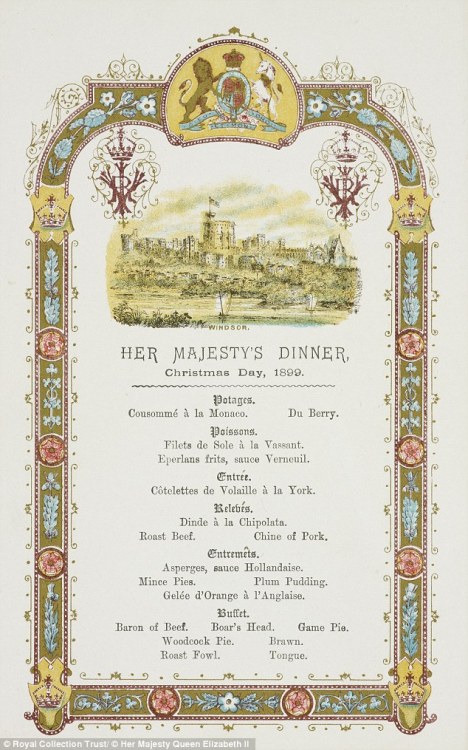 WINDSOR.
HER MAJESTY'S DINNER,
Christmas Day, 1899.
Potages.
Cousommé à la Monaco. Du Berry.
Poissons.
Filets de Sole à la Vassant.
Eperlans frits, sauce Verneuil.
Entrée.
Côtelettes de Volaille à la York.
Relevés.
Dinde à la Chipolata.
Roast Beef. Chine of Pork.
Entremêts.
Asperges, sauce Hollandaise.
Mince Pies. Plum Pudding.
Gelée d'Orange à l'Anglaise.
Buffet.
Baron of Beef. Boar's Head. Game Pie.
Woodcock Pie. Brawn.
Roast Fowl. Tongue.
© Royal Collection Trust/ © Her Majesty Queen Elizabeth II